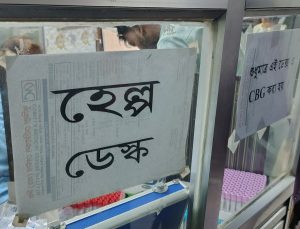 হেল্প
ডেস্ক
শুধুমাত্র এই ডেস্কে
CBG করা হয়